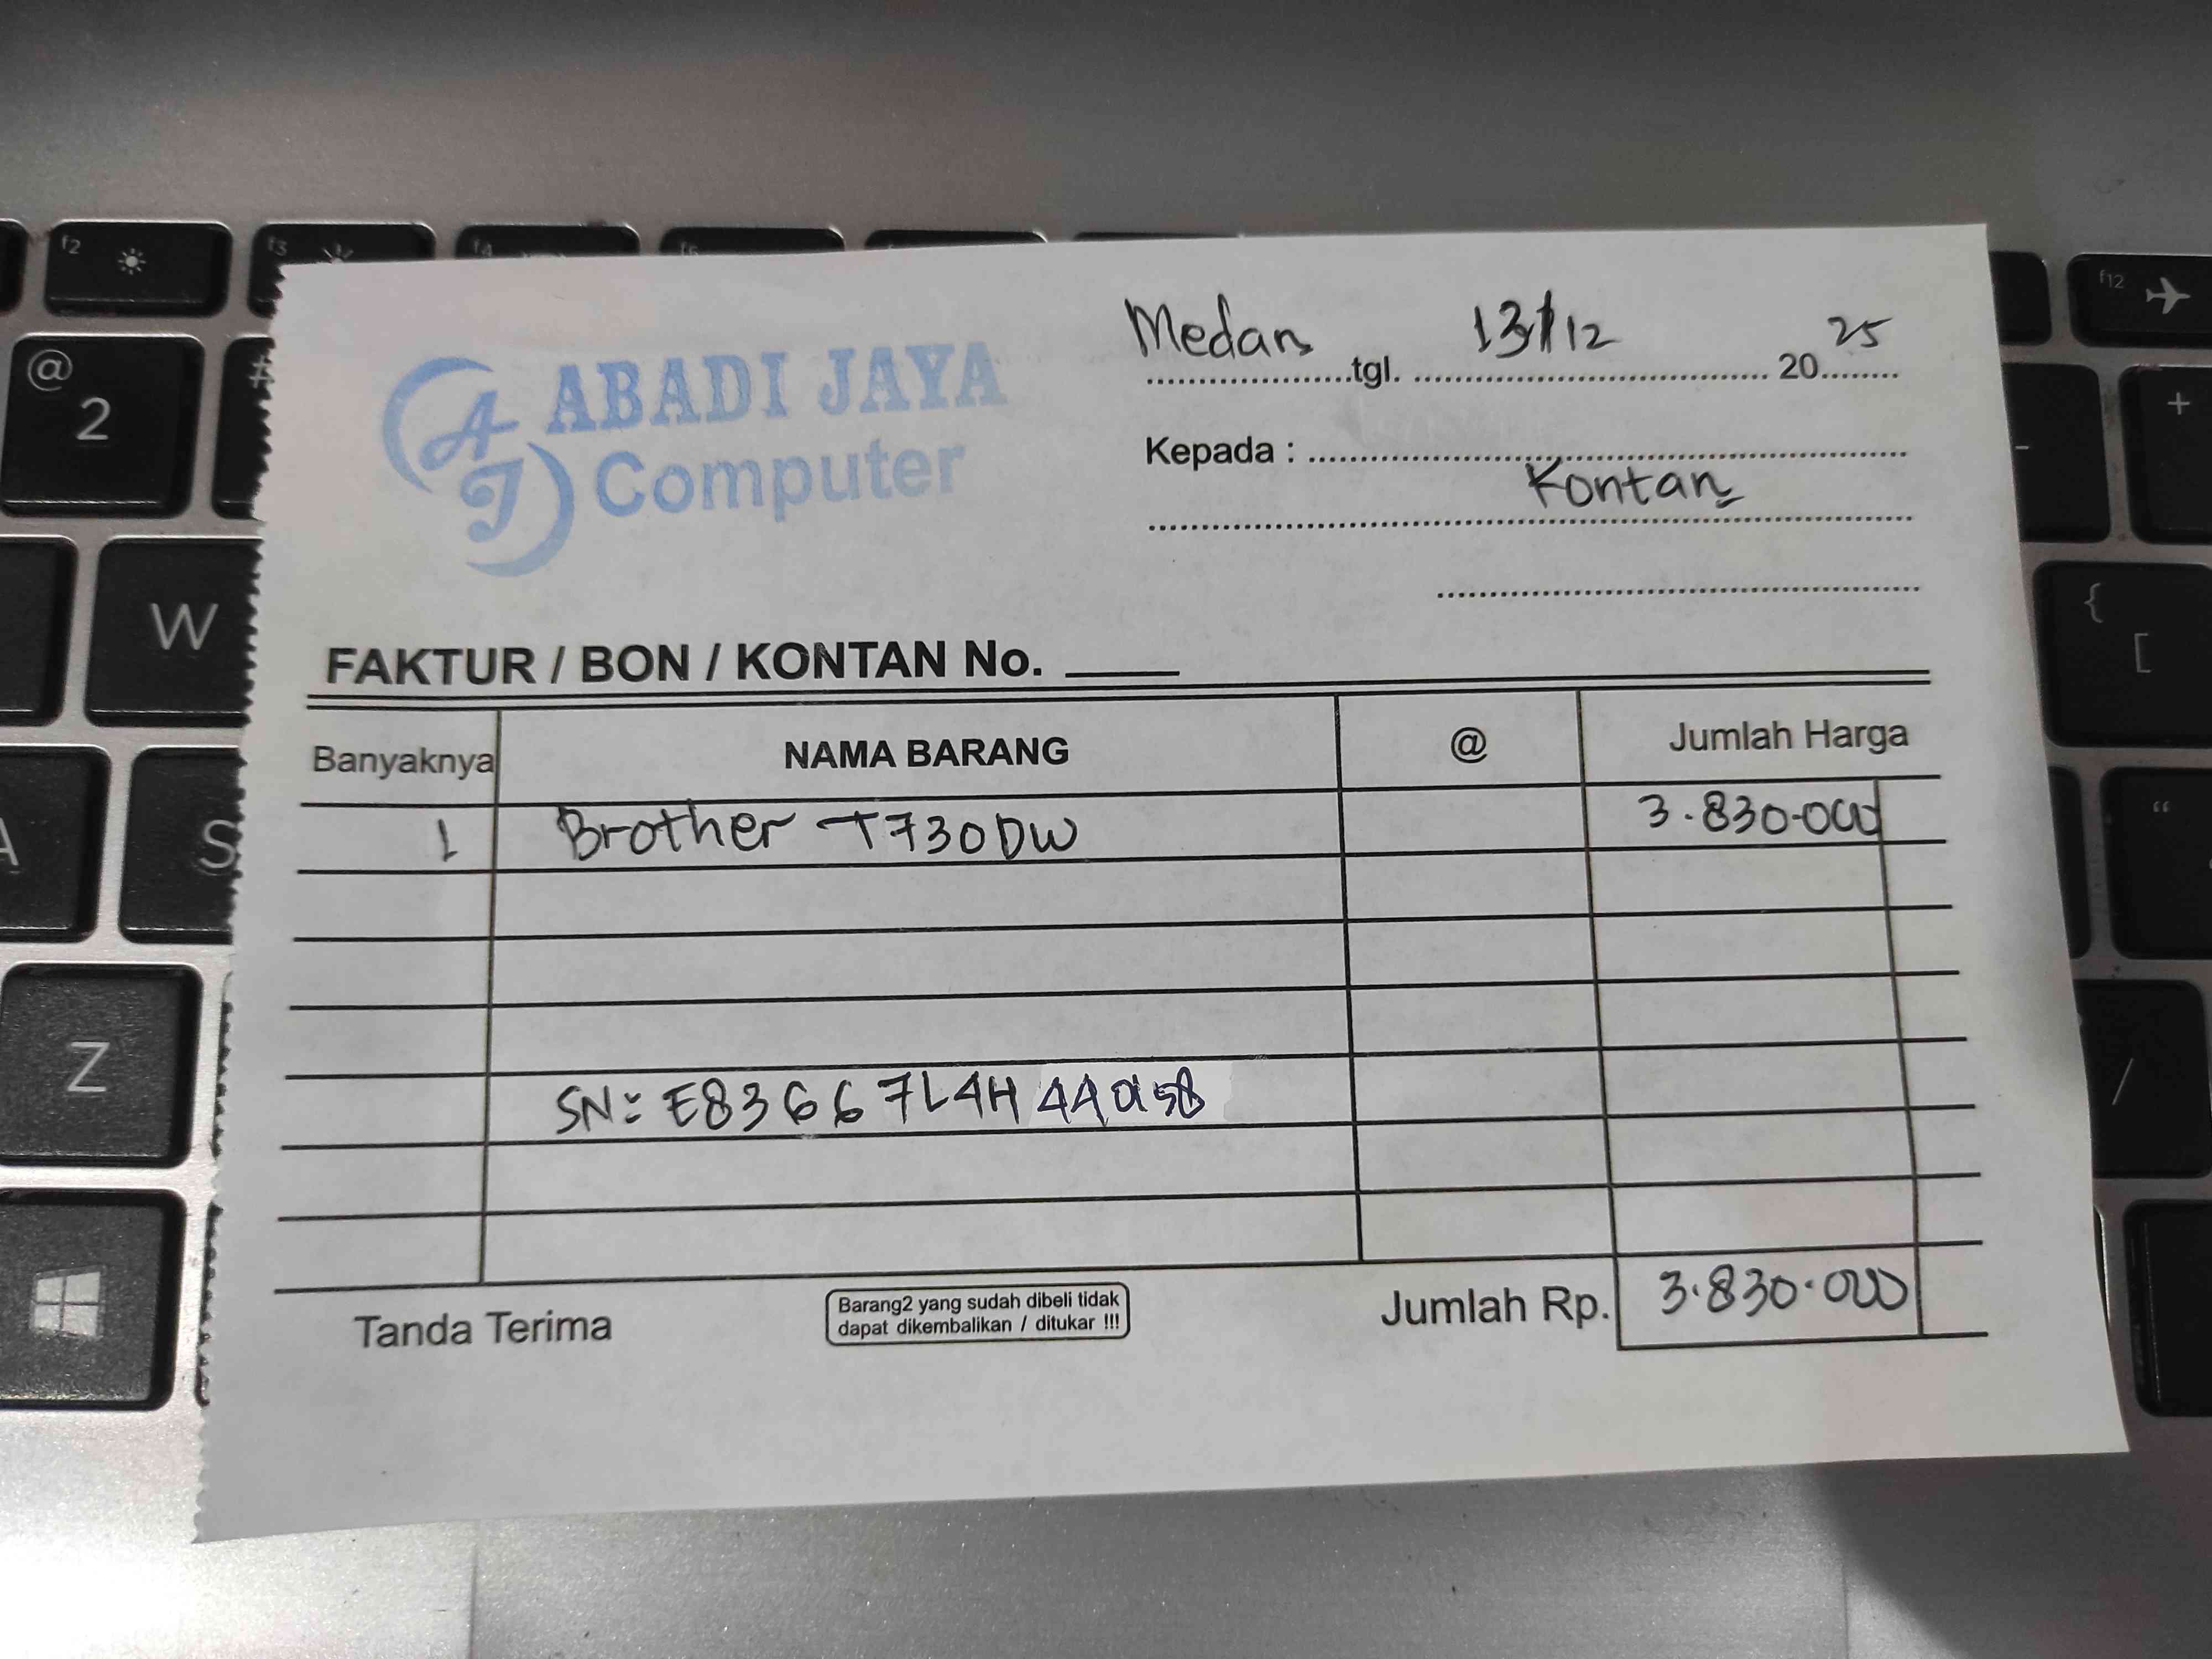 ABADI JAYA
Computer
AJ
Medan tgl. 13/12 2025
Kepada :
Kontan
FAKTUR / BON / KONTAN No.
Banyaknya NAMA BARANG @ Jumlah Harga
1 Brother T730DW 3.830.000
SN: E83667L4H44958
Tanda Terima
Barang2 yang sudah dibeli tidak
dapat dikembalikan / ditukar !!!
Jumlah Rp. 3.830.000
f2
f3
f4
f12
@
2
#
W
S
A
Z
+
-
{
[
“
/